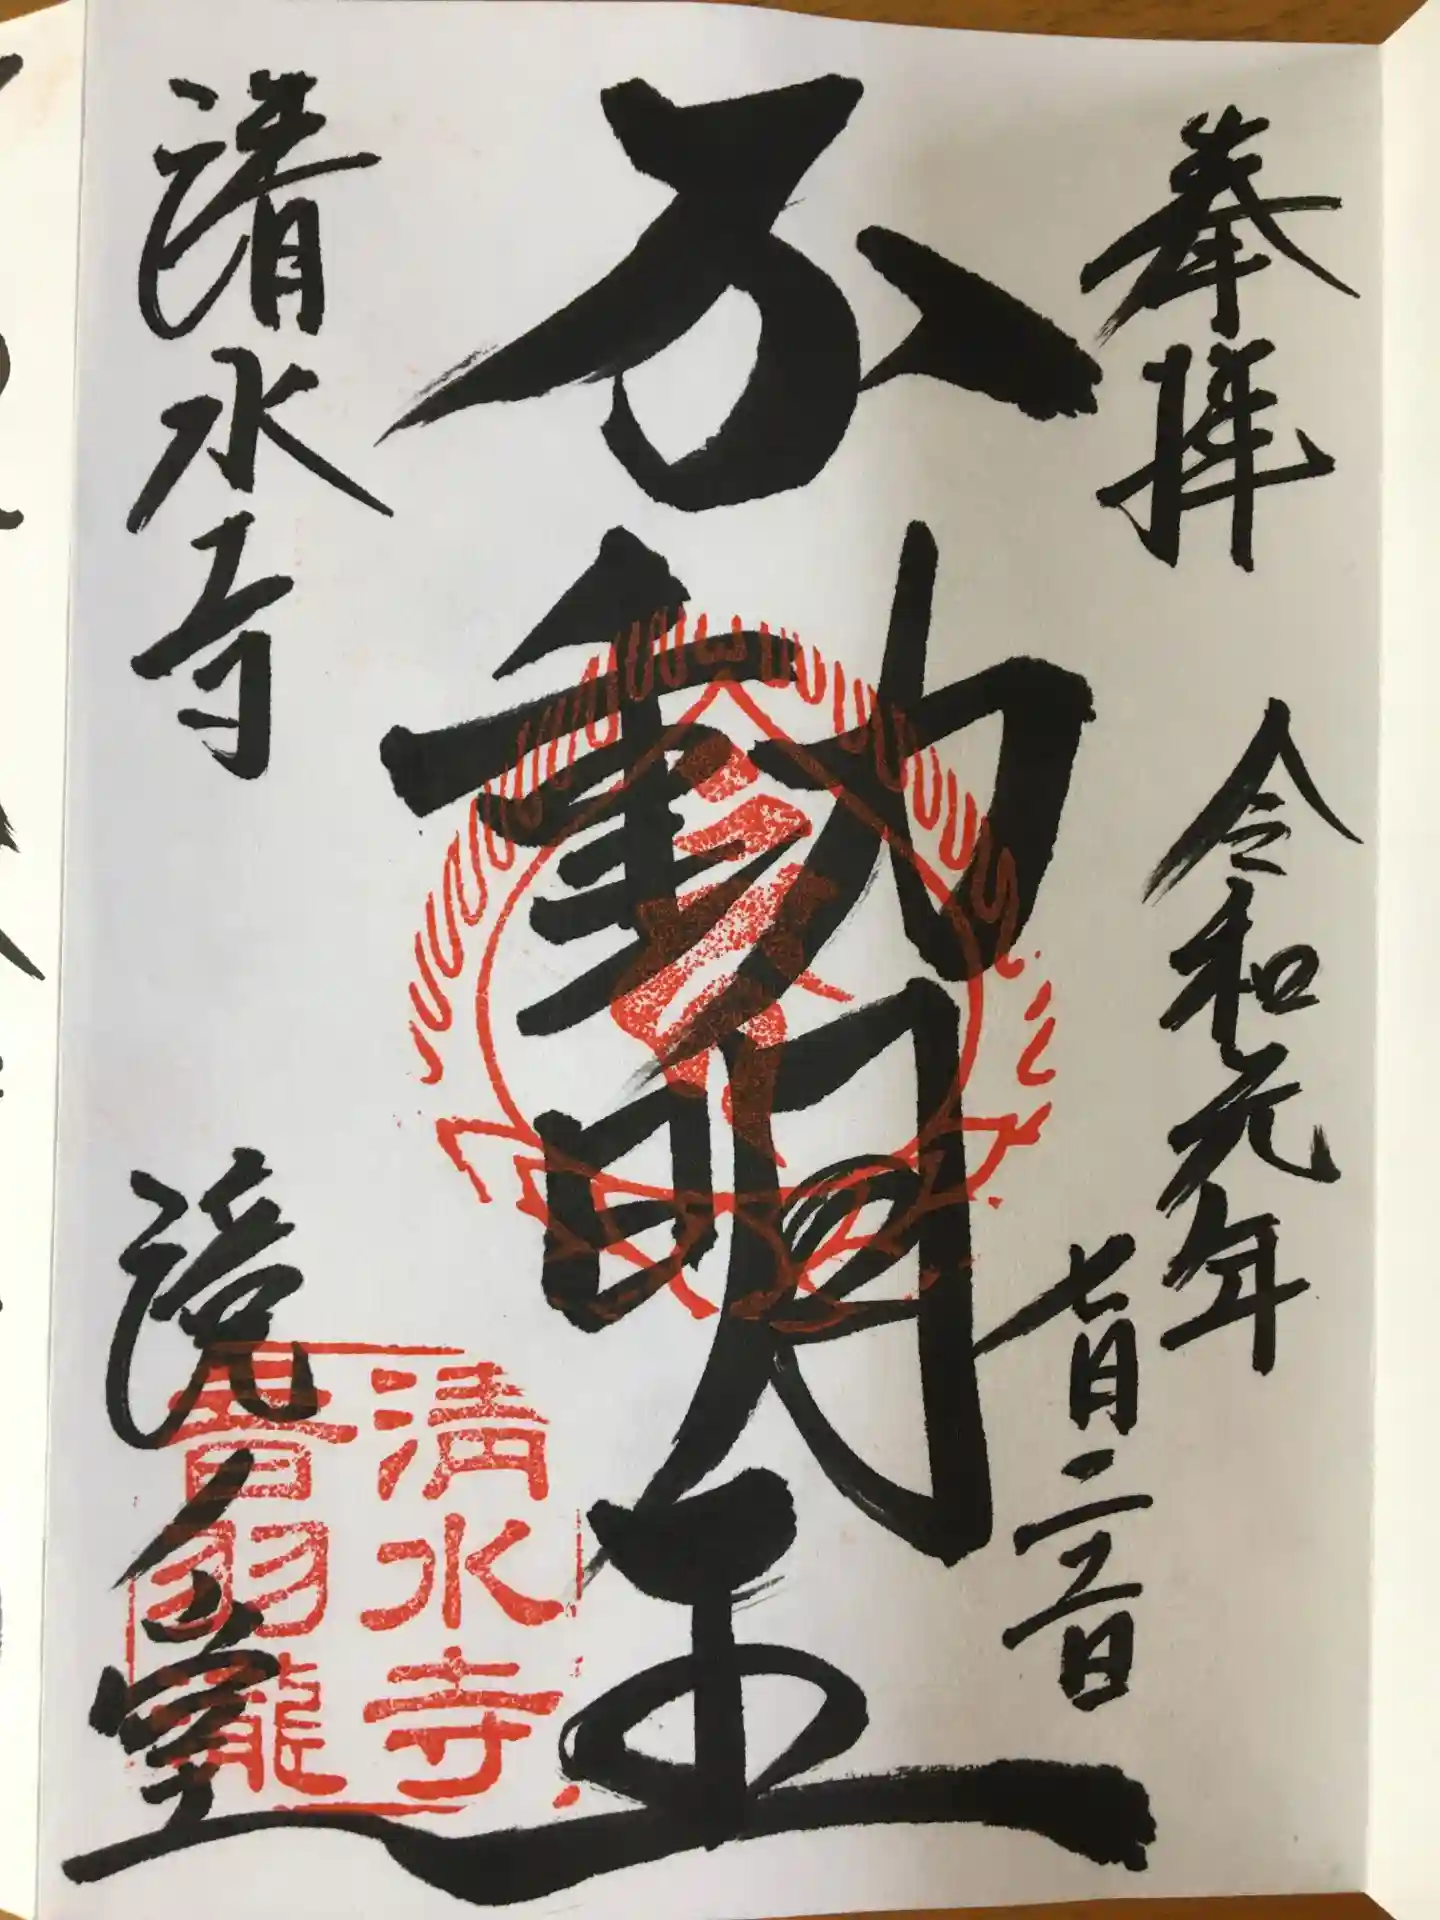 奉拝
令和元年
七月二日
不動明王
清水寺
滝ノ堂
清水寺
音羽瀧